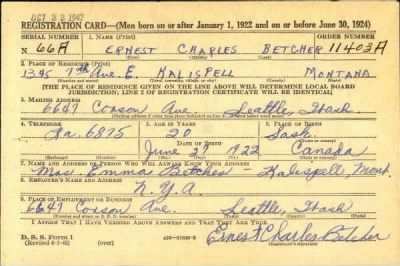 OCT 22 1942
REGISTRATION CARD—(Men born on or after January 1, 1922 and on or before June 30, 1924)
SERIAL NUMBER 1. NAME (Print) ORDER NUMBER
N 66A ERNEST CHARLES BETCHER 11403A
2. PLACE OF RESIDENCE (Print)
1345 7th Ave. E. KALISPELL MONTANA
[THE PLACE OF RESIDENCE GIVEN ON THE LINE ABOVE WILL DETERMINE LOCAL BOARD
JURISDICTION; LINE 2 OF REGISTRATION CERTIFICATE WILL BE IDENTICAL]
3. MAILING ADDRESS
6647 Corson Ave Seattle, Wash.
4. TELEPHONE 5. AGE IN YEARS 6. PLACE OF BIRTH
La. 6875 20 Sask.
DATE OF BIRTH
June 29 1922 Canada
7. NAME AND ADDRESS OF PERSON WHO WILL ALWAYS KNOW YOUR ADDRESS
Mrs. Emma Betcher - Kalispell, Mont.
8. EMPLOYER'S NAME AND ADDRESS
N.Y.A.
9. PLACE OF EMPLOYMENT OR BUSINESS
6647 Corson Ave. Seattle, Wash
I AFFIRM THAT I HAVE VERIFIED ABOVE ANSWERS AND THAT THEY ARE TRUE.
D. S. S. Form 1
Ernest Charles Betcher